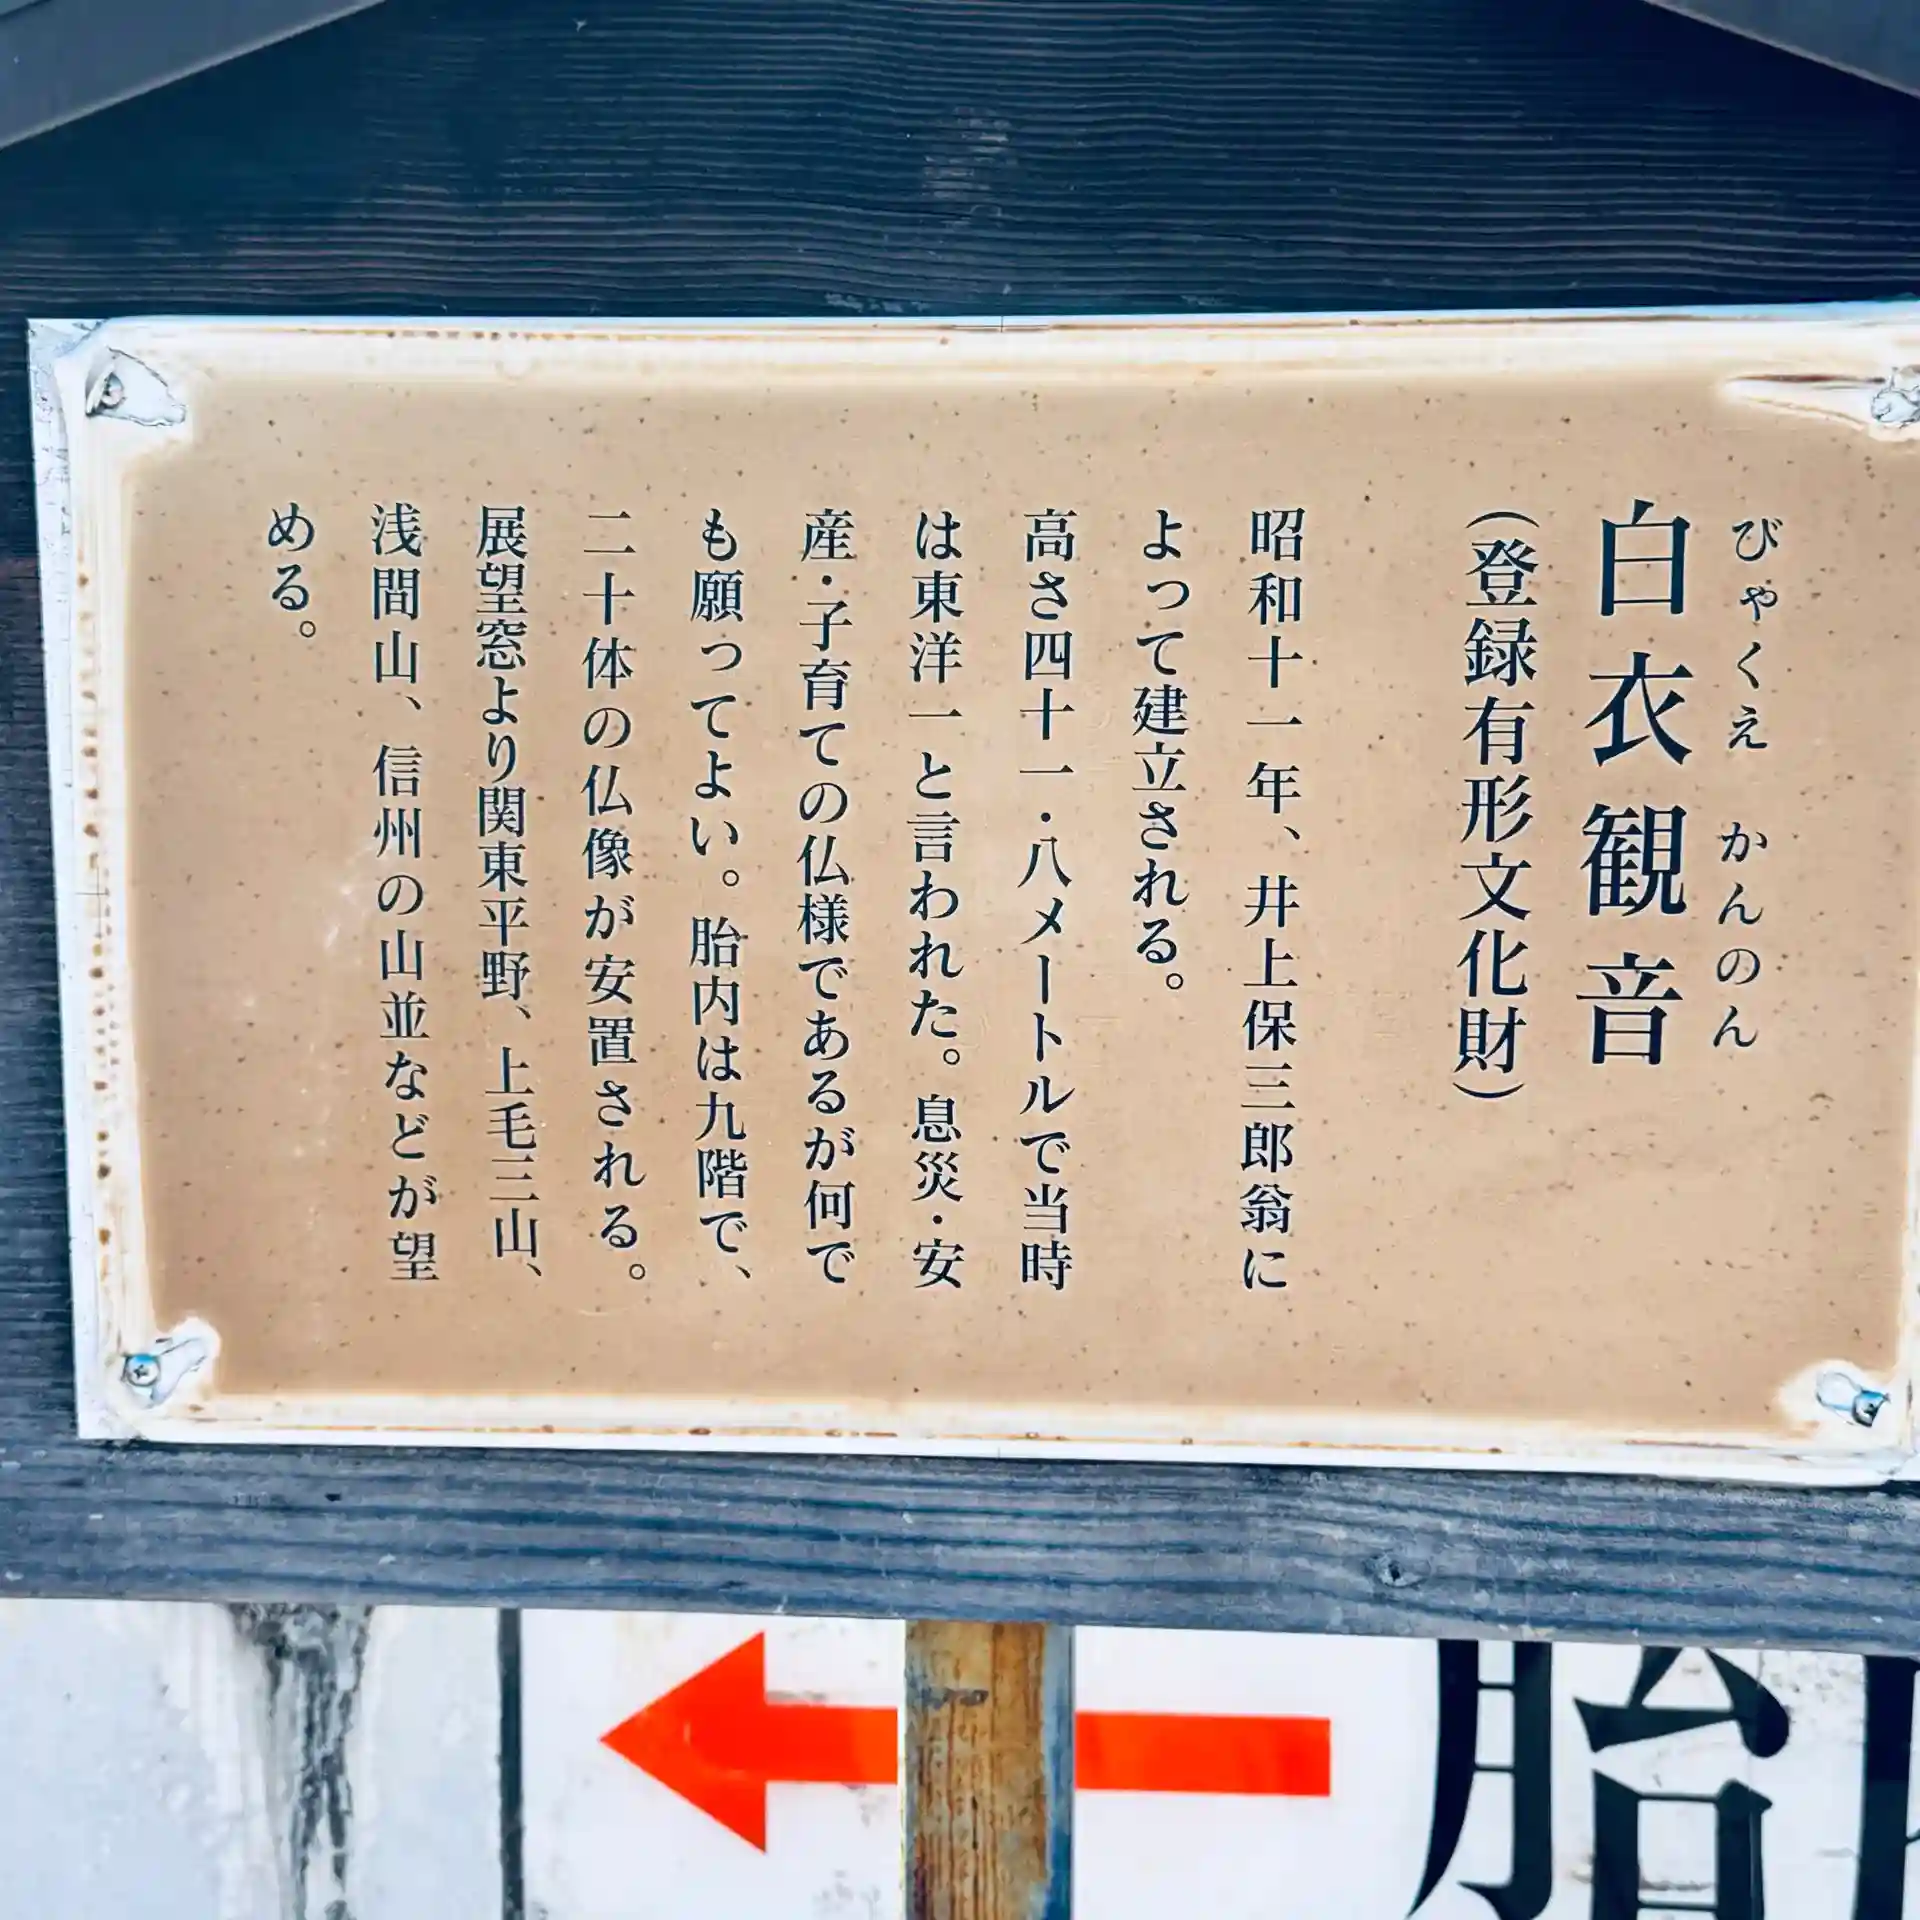 びゃくえ かんのん
白衣観音
（登録有形文化財）
昭和十一年、井上保三郎翁に
よって建立される。
高さ四十一・八メートルで当時
は東洋一と言われた。息災・安
産・子育ての仏様であるが何で
も願ってよい。胎内は九階で、
二十体の仏像が安置される。
展望窓より関東平野、上毛三山、
浅間山、信州の山並などが望
める。
胎